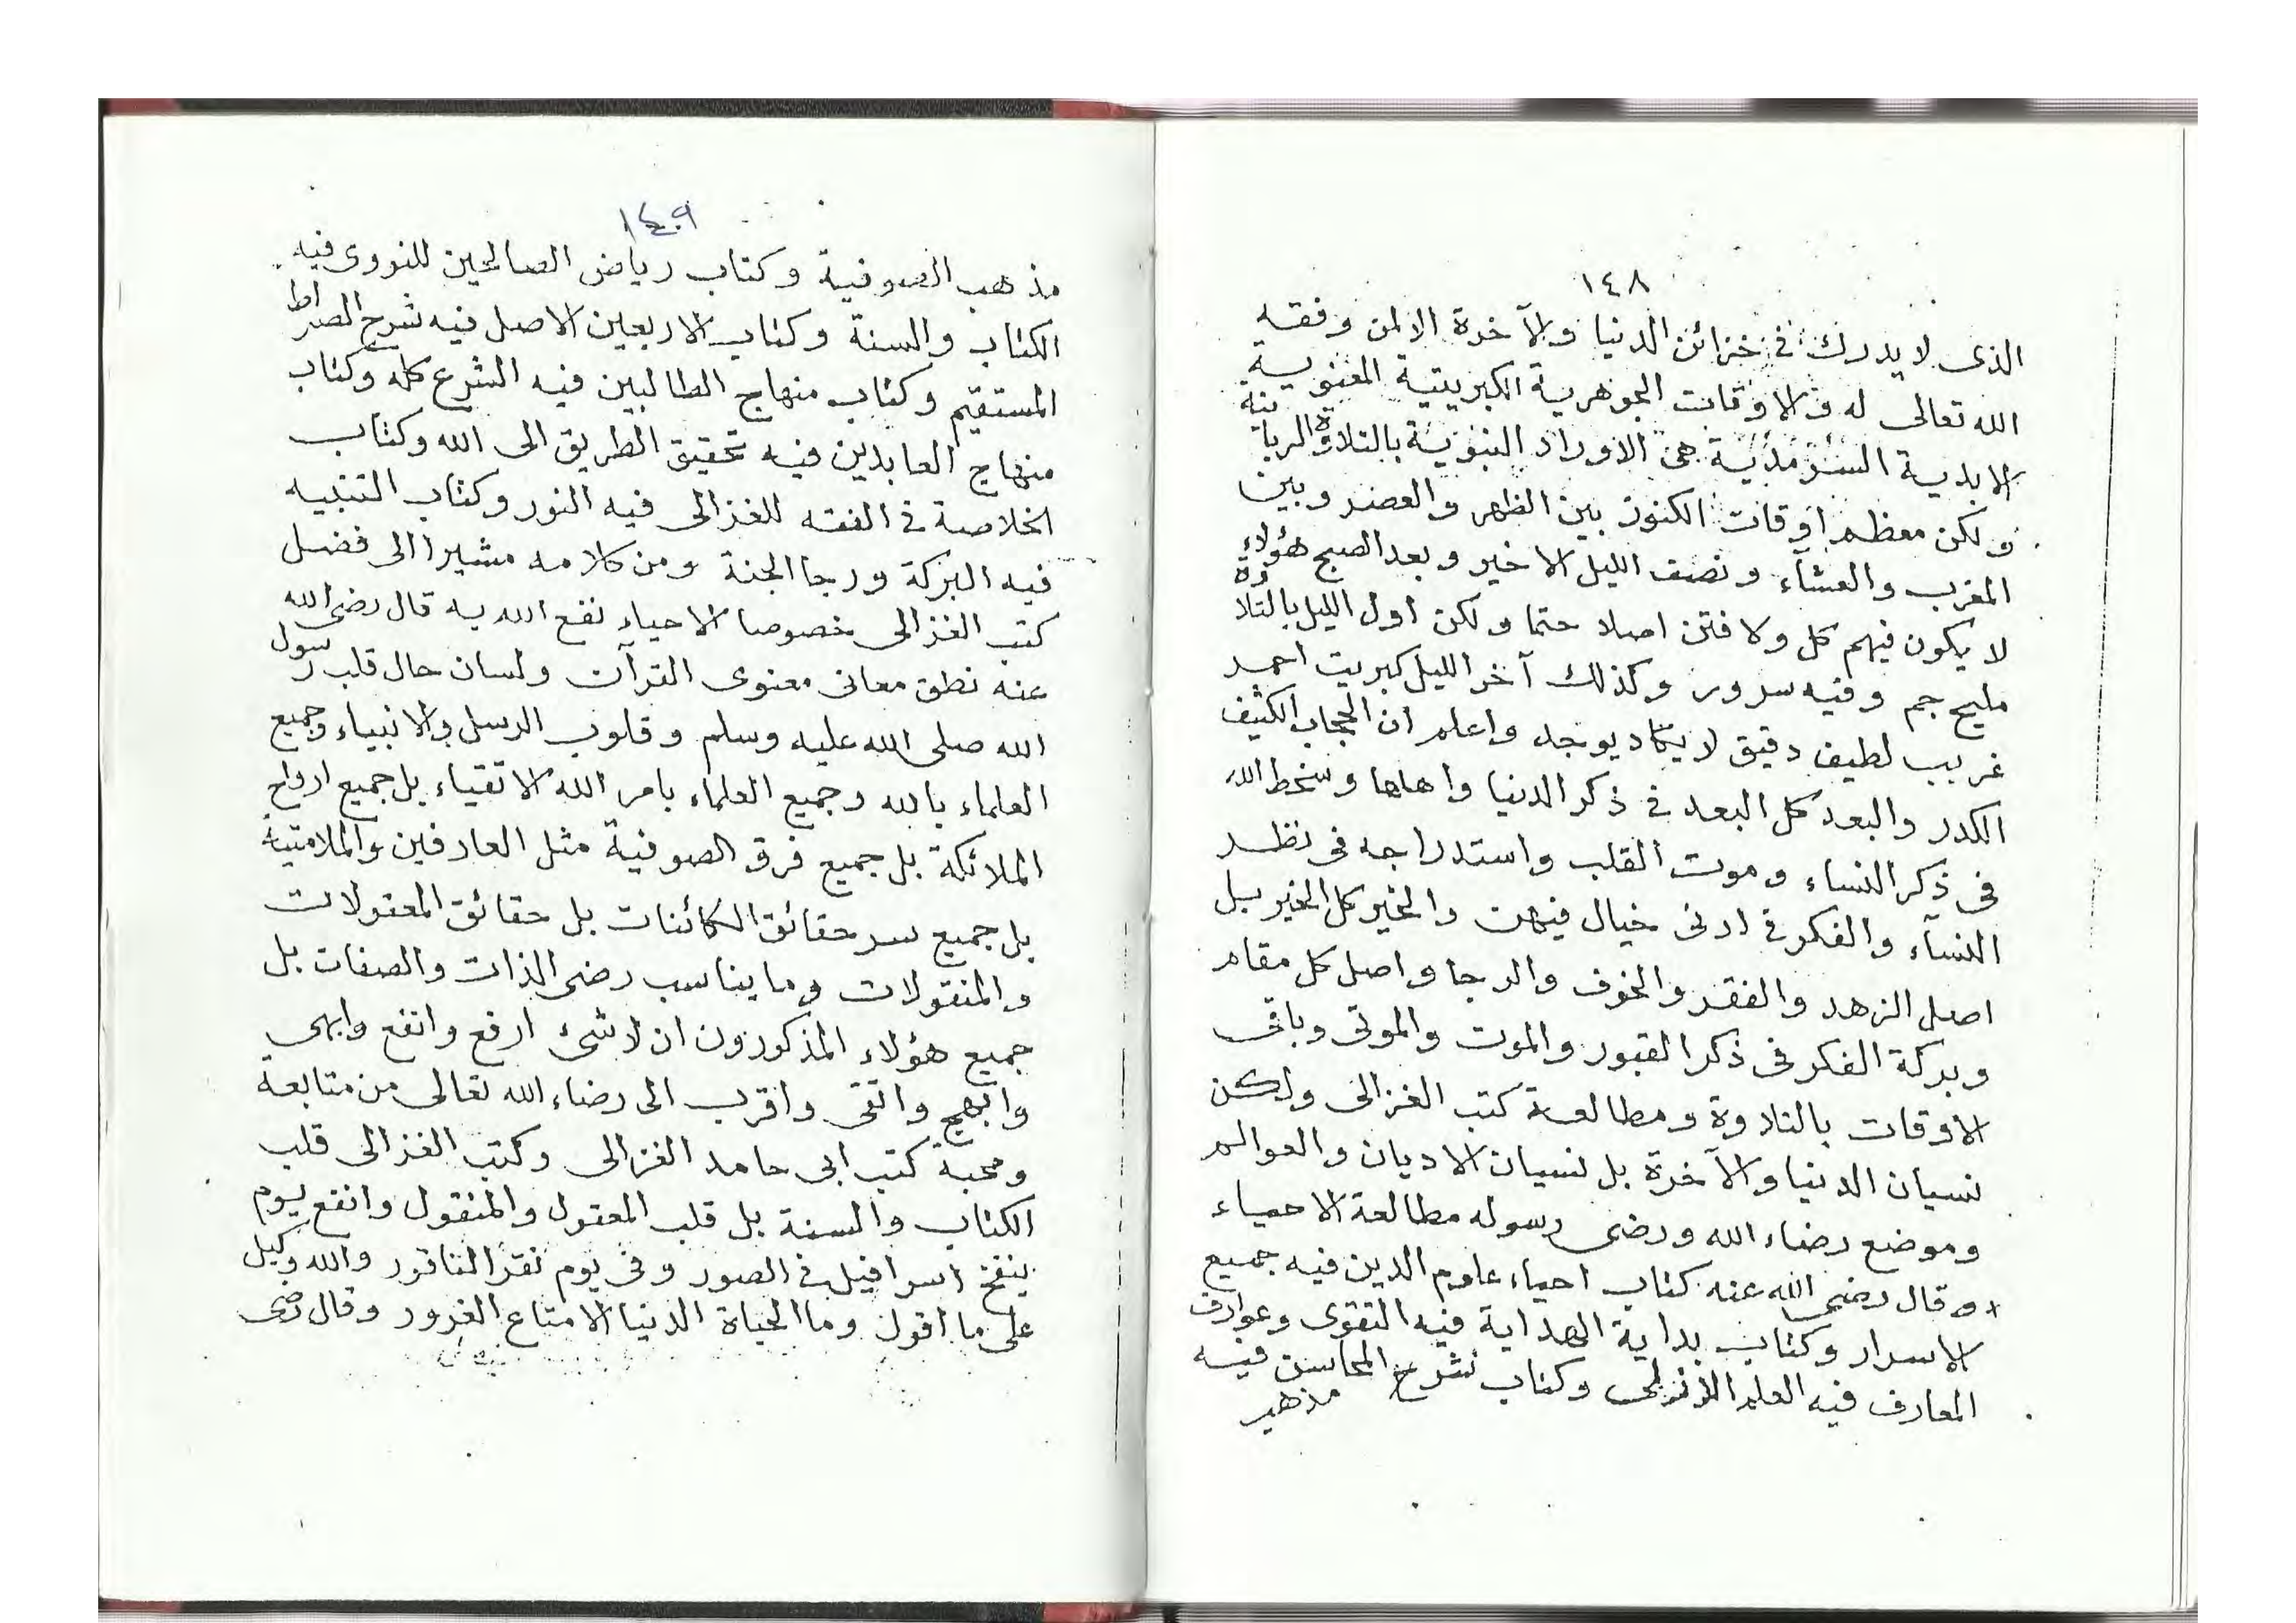 ١٤٨
الذى لا يدرك في خزائن الدنيا والآخرة الا لمن وفقه
الله تعالى له والاوقات الجوهرية الكبريتية المعنوية
الابدية السرمدية هى الاوراد النبوية بالتلاوة الربانية
ولكن معظم اوقات الكنوز بين الظهر والعصر وبين
المغرب والعشاء ونصف الليل الاخير وبعد الصبح هؤلاء
لا يكون فيهم كل ولا فتن اصلا حتما ولكن اول الليل بالتلاوة
مليح جم وفيه سرور وكذلك آخر الليل كبريت احمر
غريب لطيف دقيق لا يكاد يوجد واعلم ان الحجاب الكثيف
الكدر والبعد كل البعد في ذكر الدنيا واهلها وسخط الله
فى ذكر النساء وموت القلب واستدراجه فى نظر
النسآء والفكر في ادنى خيال فيهن والخير كل الخير بل
اصل الزهد والفقر والخوف والرجا واصل كل مقام
وبركة الفكر فى ذكر القبور والموت والموتى وباقى
الاوقات بالتلاوة ومطالعة كتب الغزالى ولكن
نسيان الدنيا والآخرة بل نسيان الاديان والعوالم
وموضع رضاء الله ورضى رسوله مطالعة الاحياء
* وقال رضى الله عنه كتاب احياء علوم الدين فيه جميع
الاسرار وكتاب بداية الهداية فيه التقوى وعوارف
المعارف فيه العلم اللازلى وكتاب نشرح المحاسن فيه
مذهب
١٤٩
مذهب الصوفية وكتاب رياض الصالحين للنووى فيه
الكتاب والسنة وكتاب الاربعين الاصل فيه شرح الصراط
المستقيم وكتاب منهاج الطالبين فيه الشرع كله وكتاب
منهاج العابدين فيه تحقيق الطريق الى الله وكتاب
الخلاصة في الفقه للغزالى فيه النور وكتاب التنبيه
فيه البركة ورجا الجنة ومن كلامه مشيرا الى فضل
كتب الغزالى خصوصا الاحياء نفع الله به قال رضى الله
عنه نطق معانى معنوى القرآن ولسان حال قلب رسول
الله صلى الله عليه وسلم وقلوب الرسل والانبياء وجميع
العلماء بالله وجميع العلماء بامر الله الاتقياء بل جميع ارواح
الملائكة بل جميع فرق الصوفية مثل العارفين والملامتية
بل جميع سر حقائق الكائنات بل حقائق المعقولات
والمنقولات وما يناسب رضى الذات والصفات بل
جميع هؤلاء المذكورون ان لا شىء ارفع وانفع وابهى
وابهج واتقى واقرب الى رضاء الله تعالى من متابعة
ومحبة كتب ابى حامد الغزالى وكتب الغزالى قلب
الكتاب والسنة بل قلب المعقول والمنقول وانفع يوم
ينفخ اسرافيل في الصور وفى يوم نقر الناقور والله وكيل
على ما اقول وما الحياة الدنيا الا متاع الغرور وقال رضى